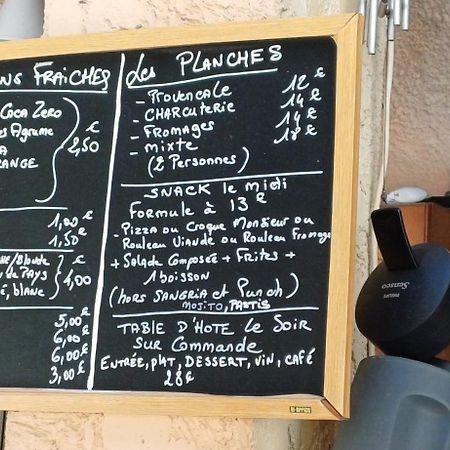 NS FRAICHES
COCA ZERO
ES AGRUME
A
RANGE
2,50 €
1,00 €
1,50 €
HE/Blonde
DE PAYS
É, BLANC
4,00
5,00
6,00 €
6,00 €
3,00 €
Les PLANCHES
- PROVENCALE 12 €
- CHARCUTERIE 14 €
- FROMAGES 14 €
- MIXTE 18 €
(2 Personnes)
SNACK le midi
FORMULE à 13 €
- Pizza ou Croque Monsieur ou
Rouleau Viande ou Rouleau Fromage
+ Salade Composée + Frites +
1 boisson
(hors SANGRIA et Punch)
MOJITO, PASTIS
TABLE D'HOTE le Soir
SUR Commande
ENTRÉE, plat, DESSERT, VIN, CAFÉ
28 €
PHILIPS
Senseo